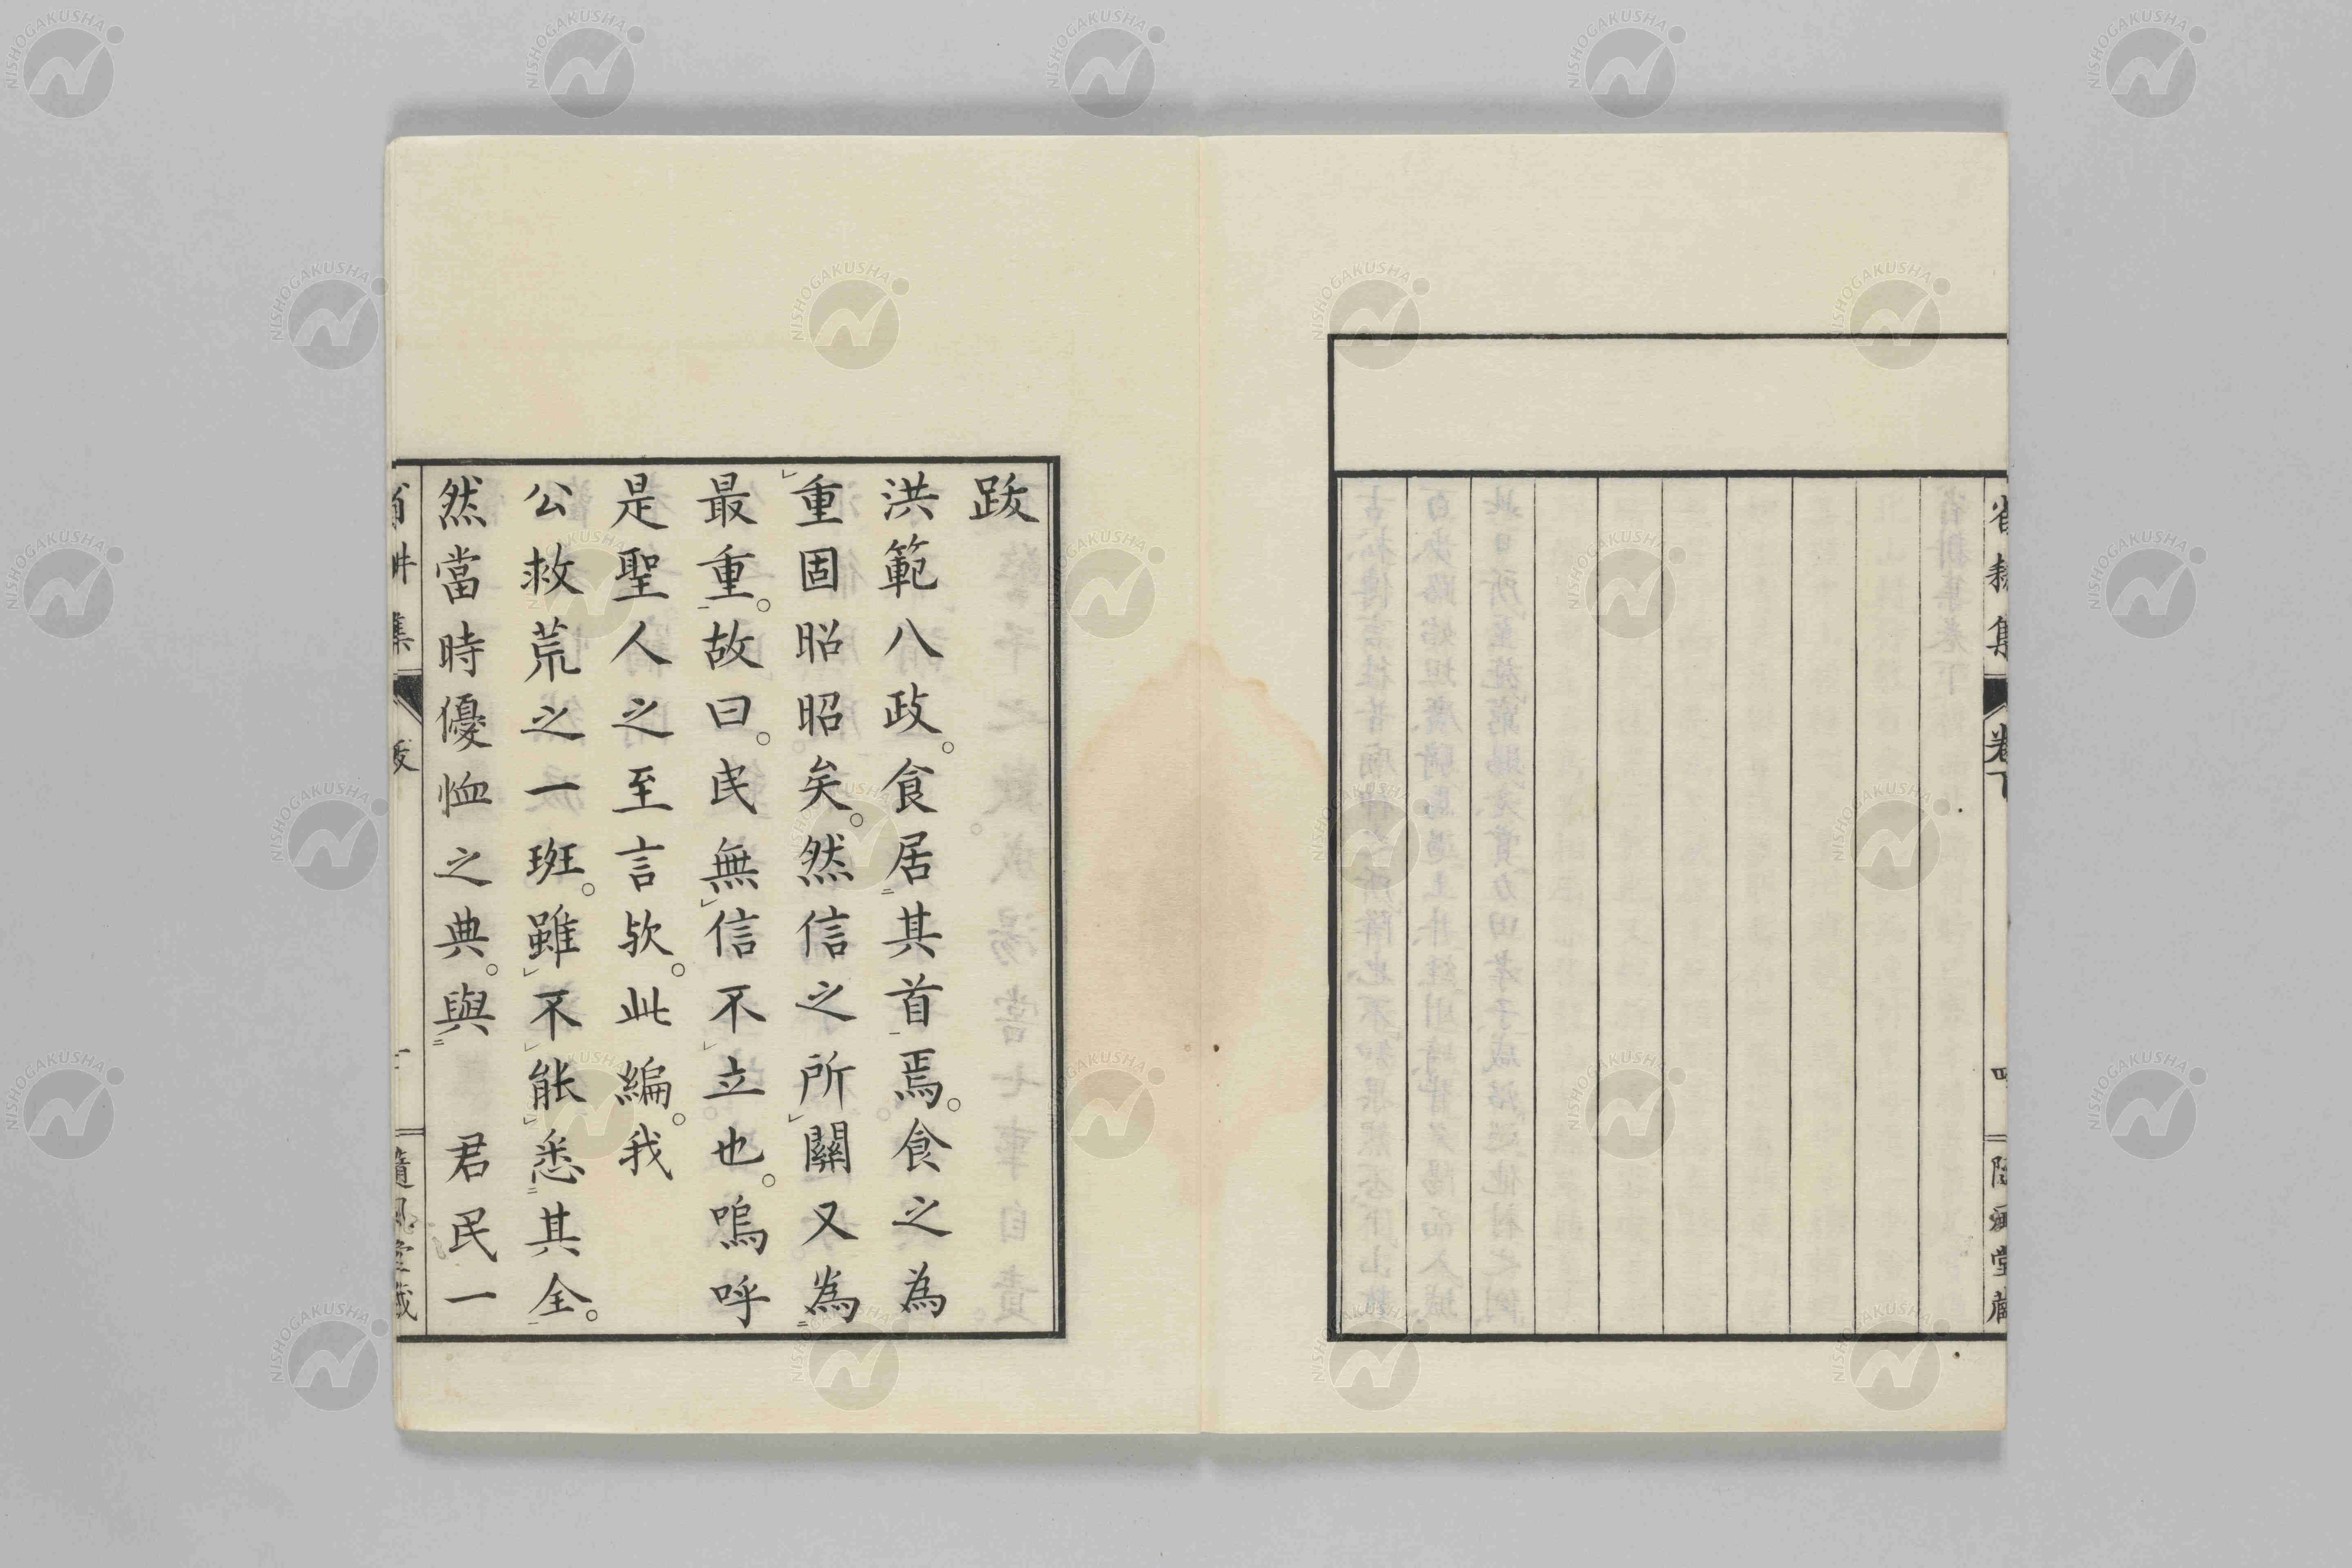 省耕集 卷下 四 隨風堂藏
跋
洪範八政。食居其首焉。食之為
重固昭昭矣。然信之所關又為
最重。故曰。民無信不立也。嗚呼
是聖人之至言欤。此編。我
公救荒之一班。雖不能悉其全。
然當時優恤之典。與 君民一
省耕集 跋 一 隨風堂藏
NISHOGAKUSHA